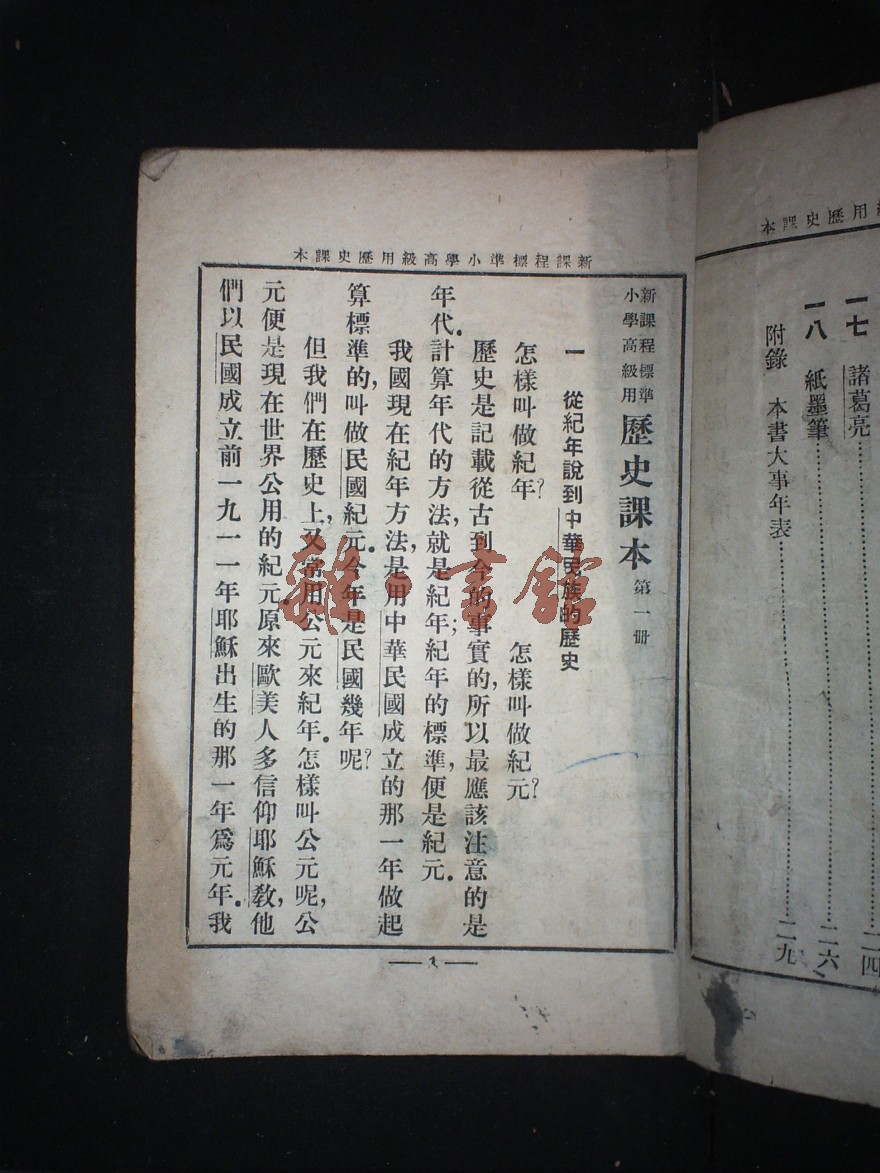 本課史歷用級
一七 諸葛亮 二四
一八 紙墨筆 二六
附錄 本書大事年表 二九
本課史歷用級高學小準標程課新
新課程標準
小學高級用
歷史課本 第一册
一 從紀年說到中華民族的歷史
怎樣叫做紀年? 怎樣叫做紀元?
歷史是記載從古到今的事實的,所以最應該注意的是
年代.計算年代的方法,就是紀年;紀年的標準,便是紀元.
我國現在紀年方法,是用中華民國成立的那一年做起
算標準的,叫做民國紀元.今年是民國幾年呢?
但我們在歷史上,又常用公元來紀年.怎樣叫公元呢,公
元便是現在世界公用的紀元.原來歐美人多信仰耶穌敎,他
們以民國成立前一九一一年耶穌出生的那一年爲元年.我
1
雜·書館